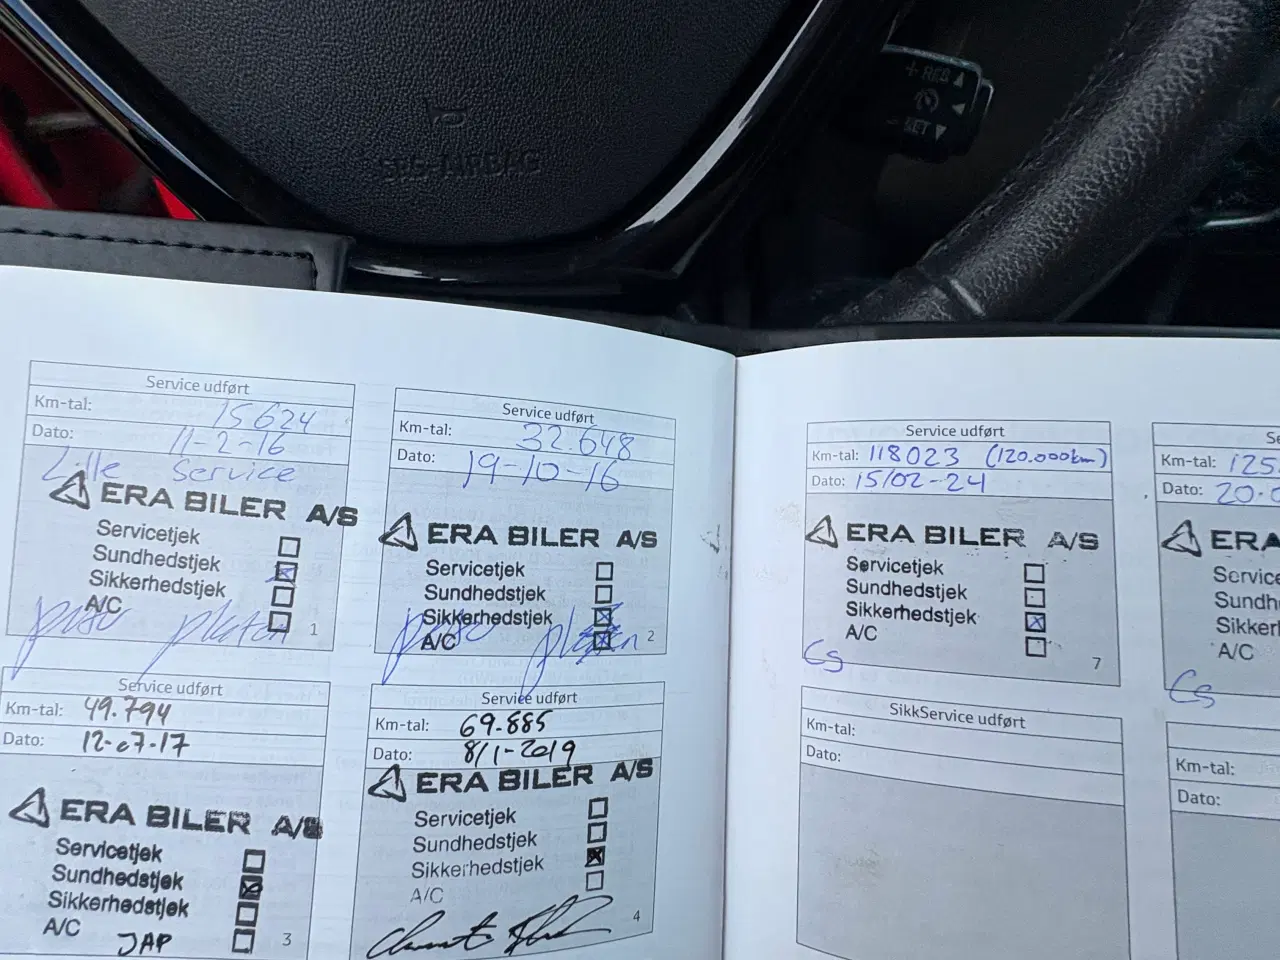 + RES
- SET
SRS-AIRBAG
Service udført
Km-tal: 15624
Dato: 11-2-16
Lille Service
ERA BILER A/S
Servicetjek
Sundhedstjek
Sikkerhedstjek
A/C
1
Service udført
Km-tal: 32.648
Dato: 19-10-16
ERA BILER A/S
Servicetjek
Sundhedstjek
Sikkerhedstjek
A/C
2
Service udført
Km-tal: 49.794
Dato: 12-07-17
ERA BILER A/S
Servicetjek
Sundhedstjek
Sikkerhedstjek
A/C
JAP
3
Service udført
Km-tal: 69.885
Dato: 8/1-2019
ERA BILER A/S
Servicetjek
Sundhedstjek
Sikkerhedstjek
A/C
4
Service udført
Km-tal: 118023 (120.000km)
Dato: 15/02-24
ERA BILER A/S
Servicetjek
Sundhedstjek
Sikkerhedstjek
A/C
Cs
7
Se
Km-tal: 125.
Dato: 20.0
ERA
Service
Sundh
Sikker
A/C
Cs
SikkService udført
Km-tal:
Dato:
Km-tal:
Dato: